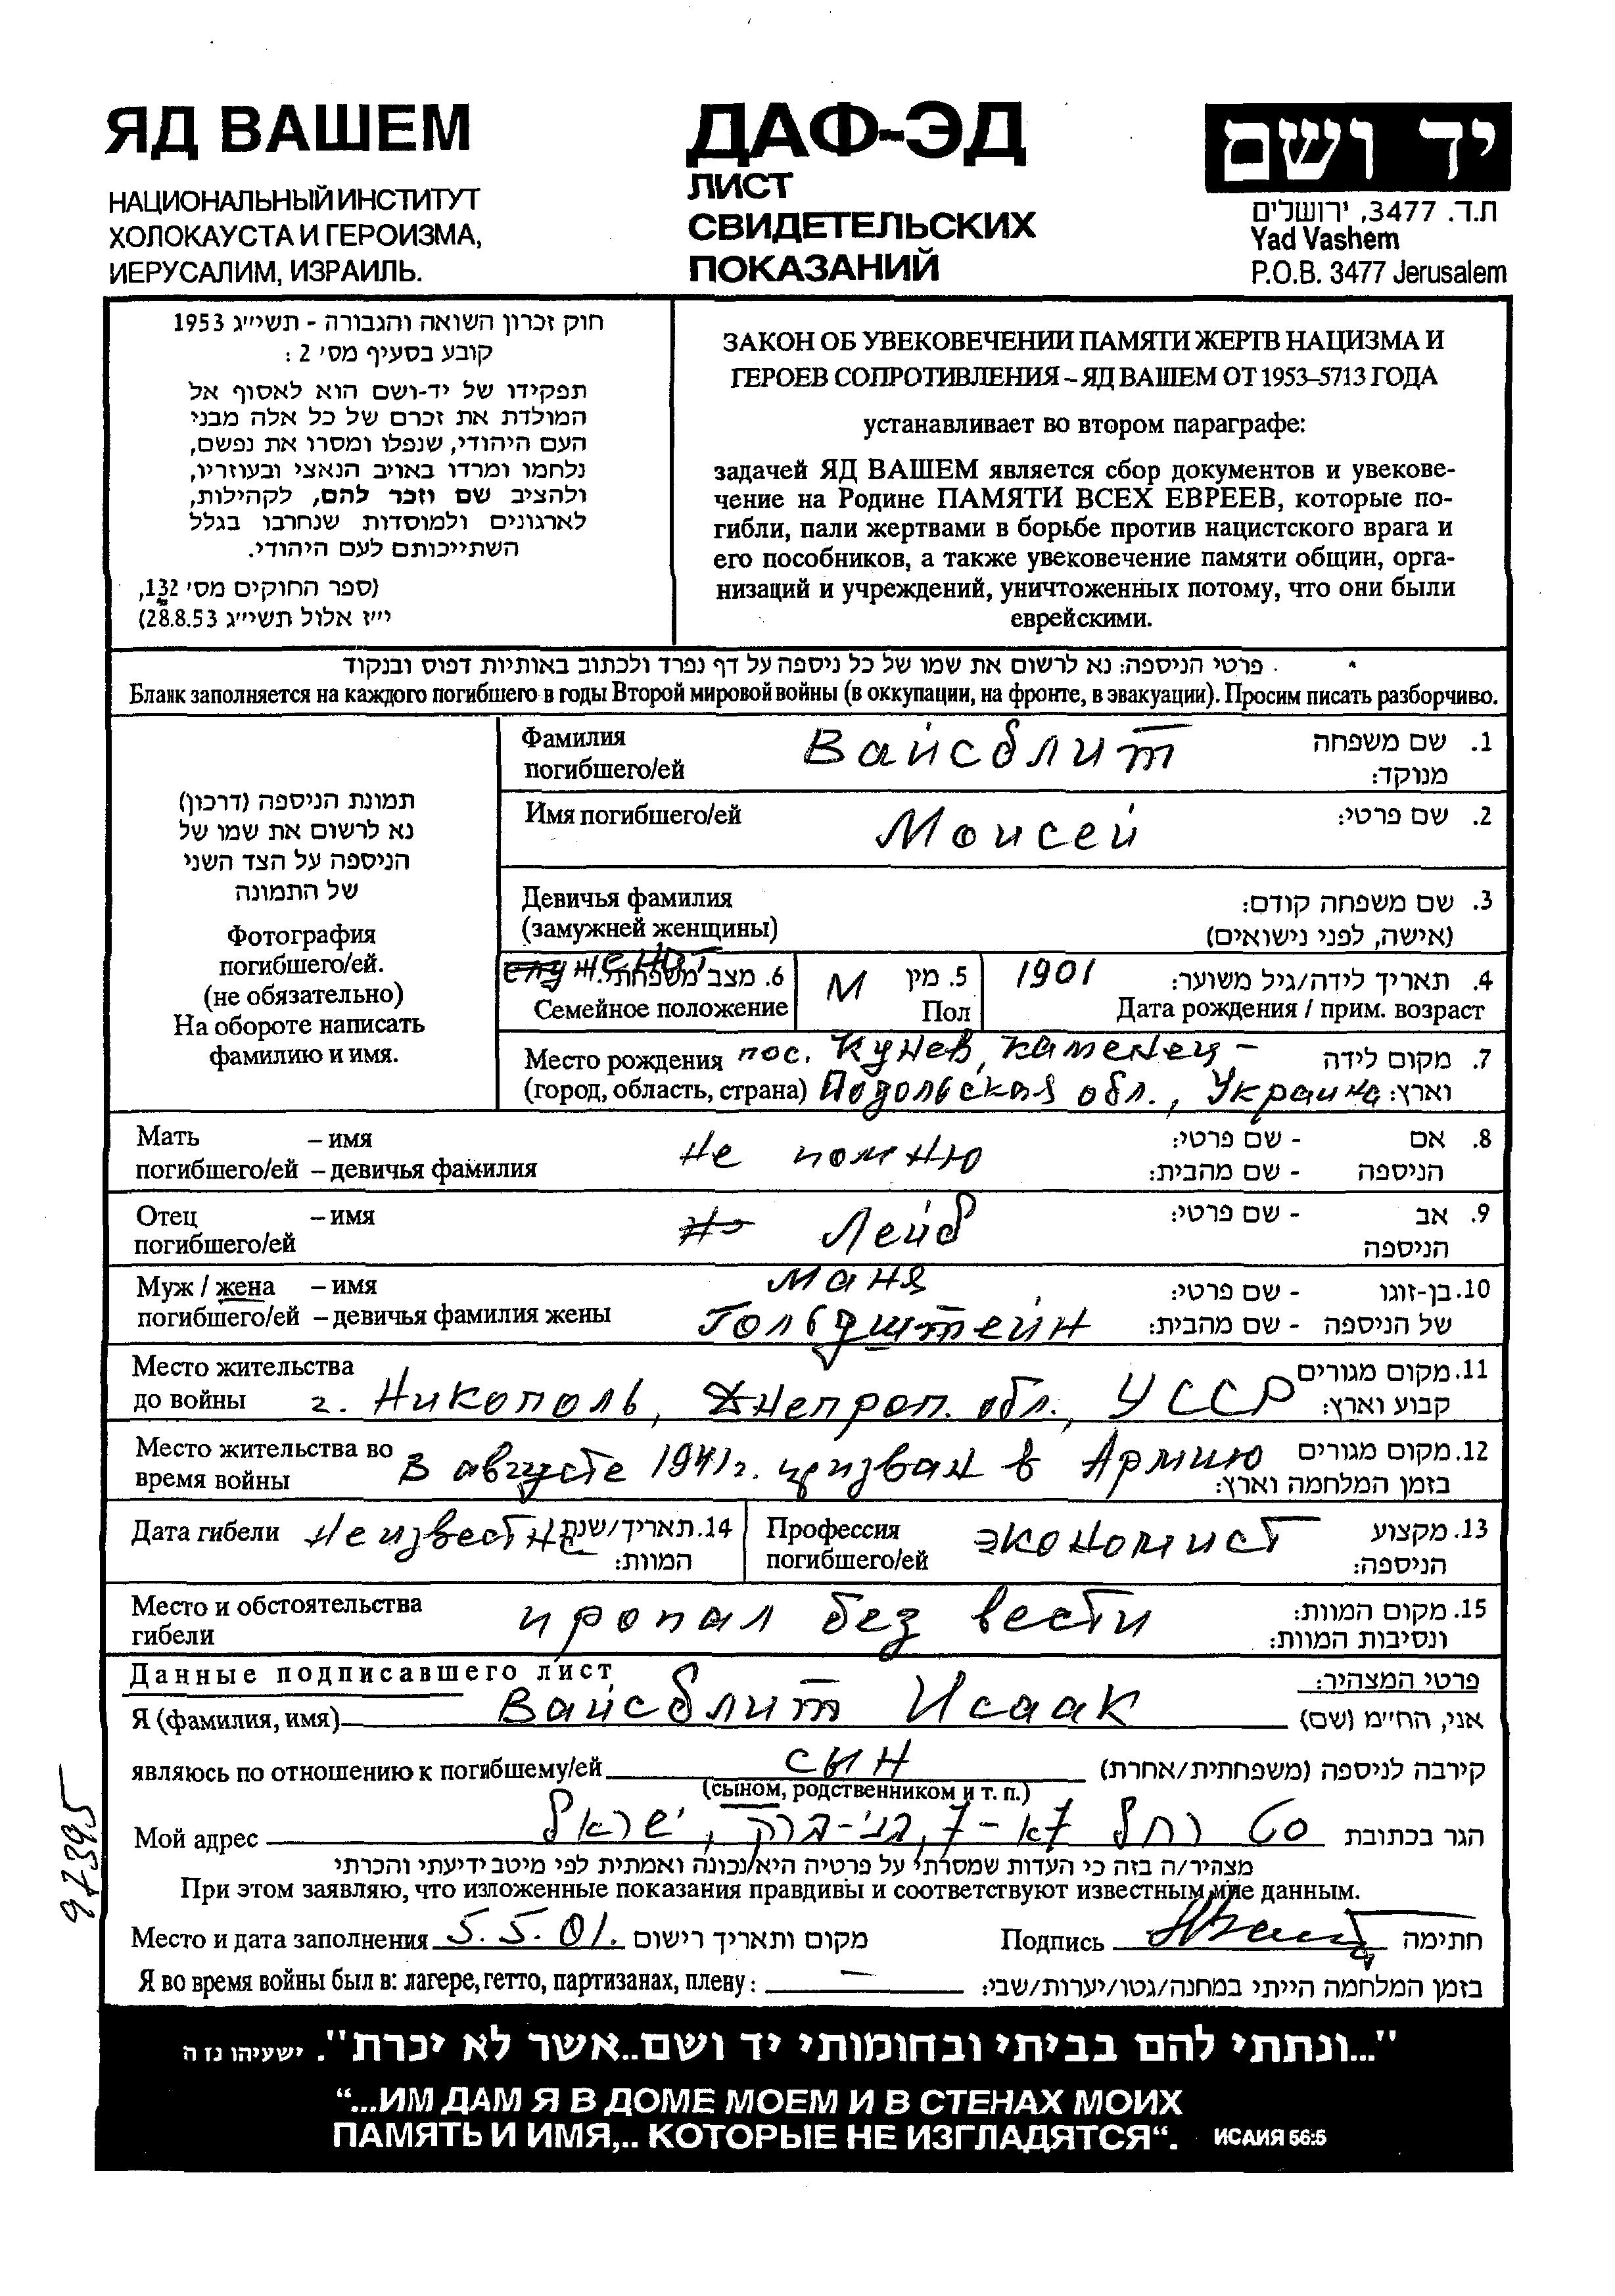 ЯД ВАШЕМ
НАЦИОНАЛЬНЫЙ ИНСТИТУТ
ХОЛОКАУСТА И ГЕРОИЗМА,
ИЕРУСАЛИМ, ИЗРАИЛЬ.
ДАФ-ЭД
ЛИСТ
СВИДЕТЕЛЬСКИХ
ПОКАЗАНИЙ
יד ושם
ת.ד. 3477, ירושלים
Yad Vashem
P.O.B. 3477 Jerusalem
חוק זכרון השואה והגבורה - תשי״ג 1953
קובע בסעיף מס׳ 2 :
תפקידו של יד-ושם הוא לאסוף אל
המולדת את זכרם של כל אלה מבני
העם היהודי, שנפלו ומסרו את נפשם,
נלחמו ומרדו באויב הנאצי ובעוזריו,
ולהציב שם וזכר להם, לקהילות,
לארגונים ולמוסדות שנחרבו בגלל
השתייכותם לעם היהודי.
(ספר החוקים מס׳ 132,
י״ז אלול תשי״ג 28.8.53)
ЗАКОН ОБ УВЕКОВЕЧЕНИИ ПАМЯТИ ЖЕРТВ НАЦИЗМА И
ГЕРОЕВ СОПРОТИВЛЕНИЯ – ЯД ВАШЕМ ОТ 1953–5713 ГОДА
устанавливает во втором параграфе:
задачей ЯД ВАШЕМ является сбор документов и увекове-
чение на Родине ПАМЯТИ ВСЕХ ЕВРЕЕВ, которые по-
гибли, пали жертвами в борьбе против нацистского врага и
его пособников, а также увековечение памяти общин, орга-
низаций и учреждений, уничтоженных потому, что они были
еврейскими.
פרטי הניספה: נא לרשום את שמו של כל ניספה על דף נפרד ולכתוב באותיות דפוס ובנקוד
Бланк заполняется на каждого погибшего в годы Второй мировой войны (в оккупации, на фронте, в эвакуации). Просим писать разборчиво.
תמונת הניספה (דרכון)
נא לרשום את שמו של
הניספה על הצד השני
של התמונה
Фотография
погибшего/ей.
(не обязательно)
На обороте написать
фамилию и имя.
Фамилия Вайсблит 1. שם משפחה
погибшего/ей מנוקד:
Имя погибшего/ей Моисей 2. שם פרטי:
Девичья фамилия 3. שם משפחה קודם:
(замужней женщины) (אישה, לפני נישואים)
женат 6. מצב משפחתי: М 5. מין 1901 4. תאריך לידה/גיל משוער:
Семейное положение Пол Дата рождения / прим. возраст
Место рождения пос. Кунев, Каменец- 7. מקום לידה
(город, область, страна) Подольская обл., Украина וארץ:
Мать – имя не помню 8. אם - שם פרטי:
погибшего/ей – девичья фамилия הניספה - שם מהבית:
Отец – имя Лейб 9. אב - שם פרטי:
погибшего/ей הניספה
Муж / жена – имя Маня 10. בן-זוגו - שם פרטי:
погибшего/ей – девичья фамилия жены Гольдштейн של הניספה - שם מהבית:
Место жительства 11. מקום מגורים
до войны г. Никополь, Днепроп. обл., УССР קבוע וארץ:
Место жительства во В августе 1941г. призван в Армию 12. מקום מגורים
время войны בזמן המלחמה וארץ:
Дата гибели Неизвестна 14. תאריך/שנת Профессия экономист 13. מקצוע
המוות: погибшего/ей הניספה:
Место и обстоятельства пропал без вести 15. מקום המוות:
гибели ונסיבות המוות:
Данные подписавшего лист פרטי המצהיר:
Я (фамилия, имя) Вайсблит Исаак אני, הח״מ (שם)
являюсь по отношению к погибшему/ей сын קירבה לניספה (משפחתית/אחרת)
(сыном, родственником и т. п.)
Мой адрес רחל 7א - 7, בני-ברק, ישראל הגר בכתובת
מצהיר/ה בזה כי העדות שמסרתי על פרטיה היא נכונה ואמתית לפי מיטב ידיעתי והכרתי
При этом заявляю, что изложенные показания правдивы и соответствуют известным мне данным.
Место и дата заполнения 5.5.01. מקום ותאריך רישום Подпись חתימה
Я во время войны был в: лагере, гетто, партизанах, плену: – בזמן המלחמה הייתי במחנה/גטו/יערות/שבי:
97395
"...ונתתי להם בביתי ובחומותי יד ושם..אשר לא יכרת". ישעיהו נז ה
“...ИМ ДАМ Я В ДОМЕ МОЕМ И В СТЕНАХ МОИХ
ПАМЯТЬ И ИМЯ,.. КОТОРЫЕ НЕ ИЗГЛАДЯТСЯ“. ИСАИЯ 56:5